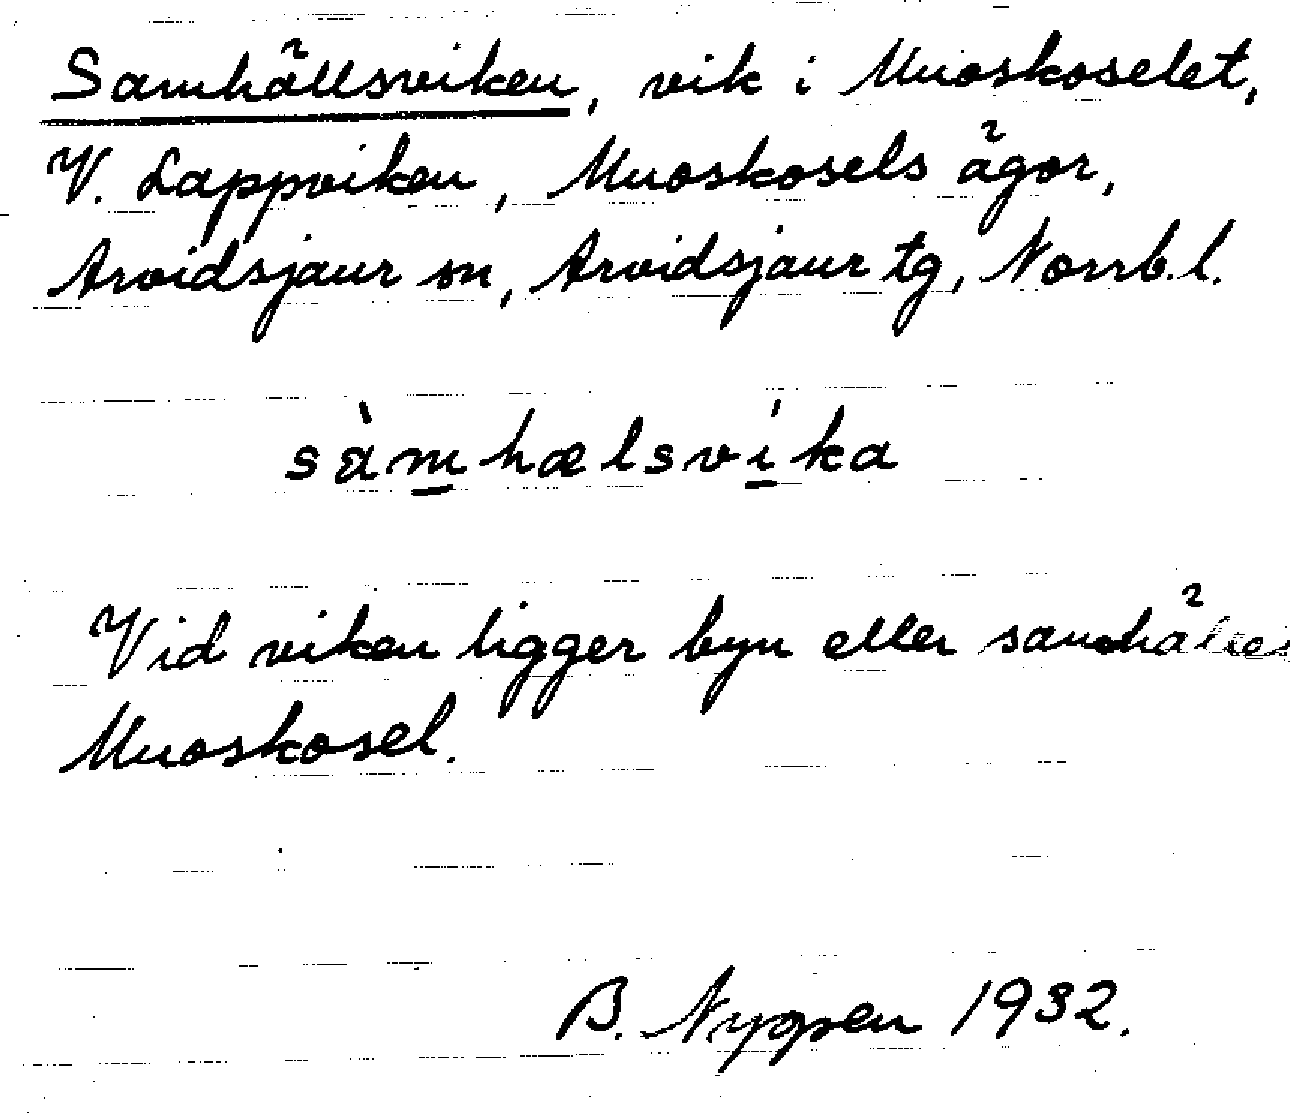 Samhällsviken, vik i Muoskoselet,
V. Lappviken, Muoskosels ägor,
Arvidsjaur sn, Arvidsjaur tg, Norrb.l.
sàm̲hælsví̲ka
Vid viken ligger byn eller samhället
Muoskosel.
B. Nyppen 1932.